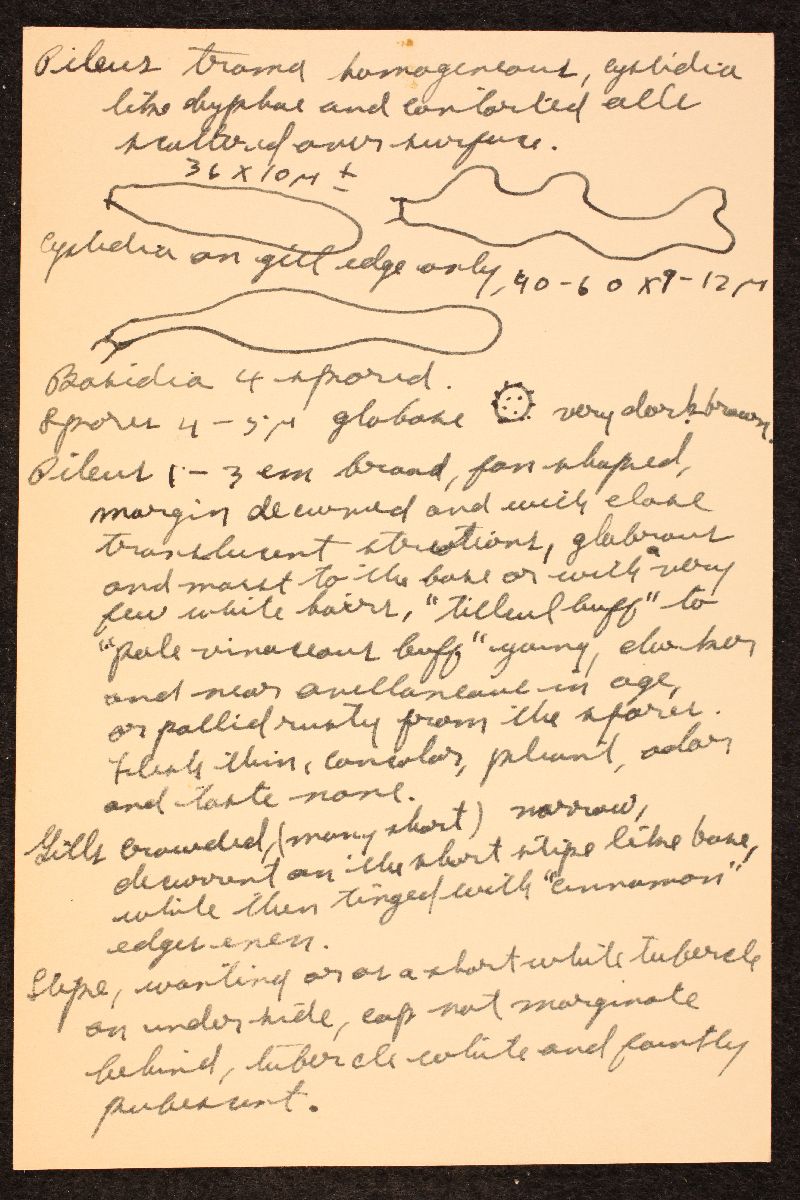 Pileus trama homogeneous, cystidia
like hyphae and contorted cells
scattered over surface.
36 x 10 µ ±
Cystidia on gill edge only, 40-60 x 9-12 µ
Basidia 4 spored.
Spores 4-5 µ globose very dark brown.
Pileus 1-3 cm broad, fan shaped,
margin decurved and with close
translucent striations, glabrous
and moist to the base or with very
few white hairs, "tilleul buff" to
"pale vinaceous buff" young, darker
and near avellaneous in age,
or pallid rusty from the spores.
Flesh thin, concolor, pliant, odor
and taste none.
Gills crowded, (many short) narrow,
decurrent on the short stipe like base,
white then tinged with "cinnamon"
edges even.
Stipe, wanting or as a short white tubercle
on under side, cap not marginate
behind, tubercle white and faintly
pubescent.